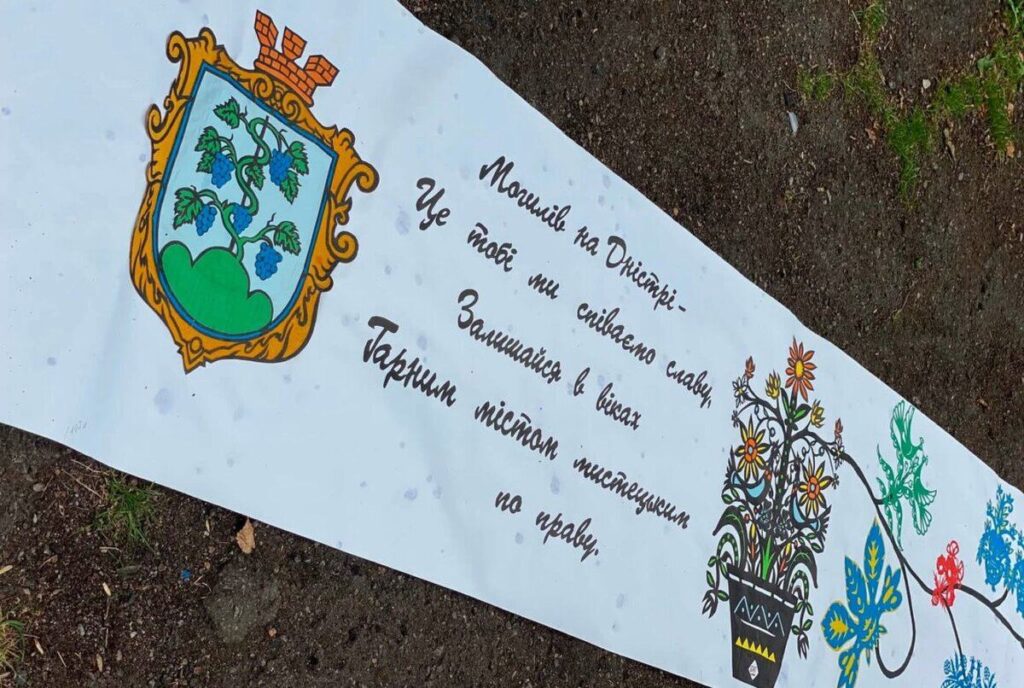 Могилів на Дністрі-
Це тобі ми співаємо славу,
Залишайся в віках
Гарним містом мистецьким
по праву.